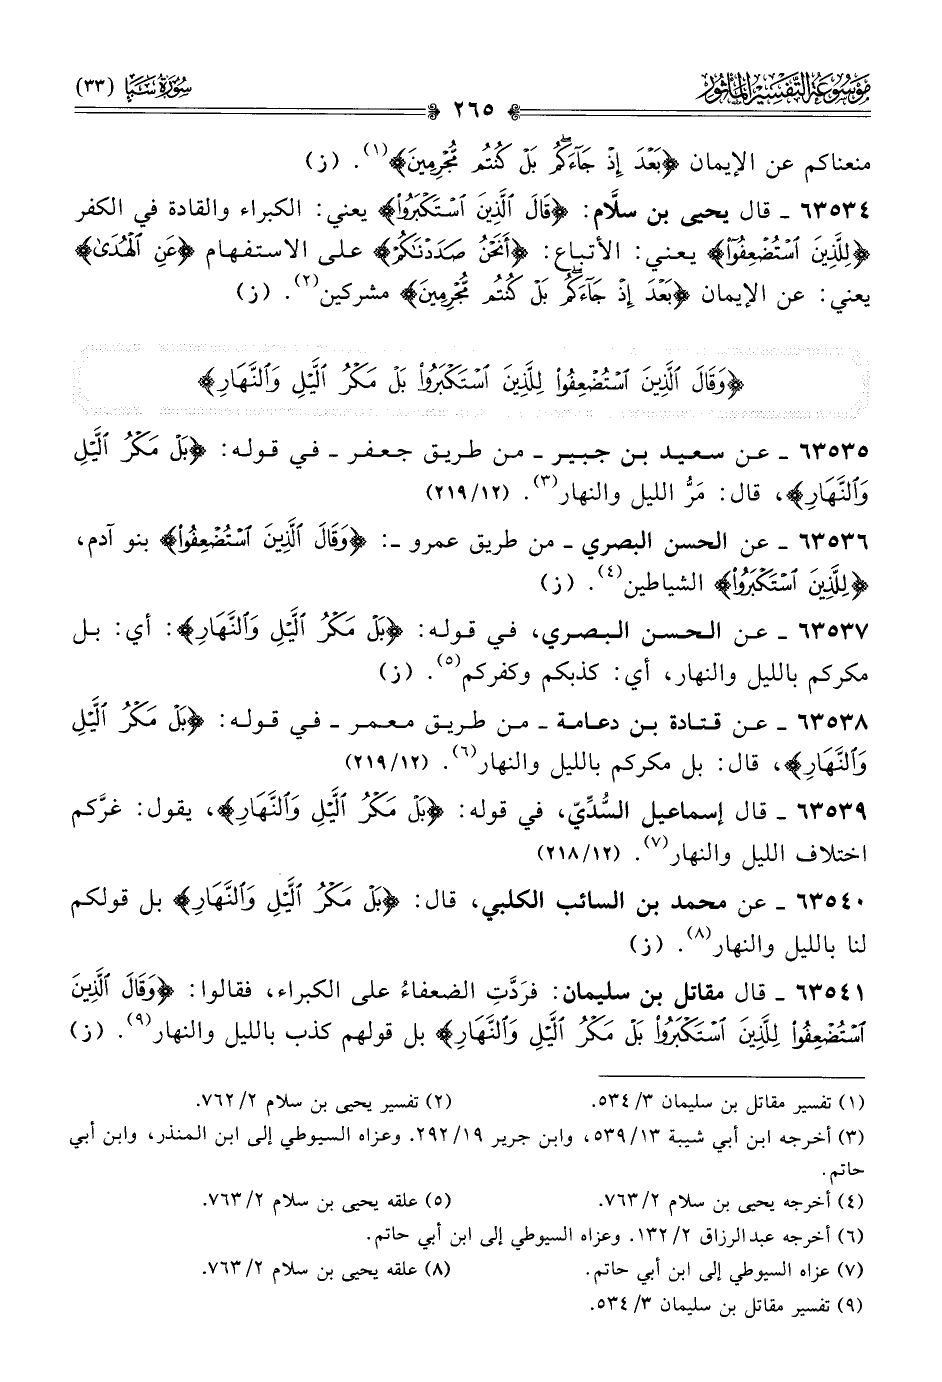 موسوعة التفسير المأثور
سورة سبأ (٣٣)
٢٦٥
منعناكم عن الإيمان ﴿بَعۡدَ إِذۡ جَآءَكُمۖ بَلۡ كُنتُم مُّجۡرِمِينَ﴾(١). (ز)
٦٣٥٣٤ ـ قال يحيى بن سلَّام: ﴿قَالَ ٱلَّذِينَ ٱسۡتَكۡبَرُواْ﴾ يعني: الكبراء والقادة في الكفر
﴿لِلَّذِينَ ٱسۡتُضۡعِفُوٓاْ﴾ يعني: الأتباع: ﴿أَنَحۡنُ صَدَدۡنَٰكُمۡ﴾ على الاستفهام ﴿عَنِ ٱلۡهُدَىٰ﴾
يعني: عن الإيمان ﴿بَعۡدَ إِذۡ جَآءَكُمۖ بَلۡ كُنتُم مُّجۡرِمِينَ﴾ مشركين(٢). (ز)
﴿وَقَالَ ٱلَّذِينَ ٱسۡتُضۡعِفُواْ لِلَّذِينَ ٱسۡتَكۡبَرُواْ بَلۡ مَكۡرُ ٱلَّيۡلِ وَٱلنَّهَارِ﴾
٦٣٥٣٥ ـ عن سعيد بن جبير ـ من طريق جعفر ـ في قوله: ﴿بَلۡ مَكۡرُ ٱلَّيۡلِ
وَٱلنَّهَارِ﴾، قال: مَرُّ الليل والنهار(٣). (٢١٩/١٢)
٦٣٥٣٦ ـ عن الحسن البصري ـ من طريق عمرو ـ: ﴿وَقَالَ ٱلَّذِينَ ٱسۡتُضۡعِفُواْ﴾ بنو آدم،
﴿لِلَّذِينَ ٱسۡتَكۡبَرُواْ﴾ الشياطين(٤). (ز)
٦٣٥٣٧ ـ عن الحسن البصري، في قوله: ﴿بَلۡ مَكۡرُ ٱلَّيۡلِ وَٱلنَّهَارِ﴾: أي: بل
مكركم بالليل والنهار، أي: كذبكم وكفركم(٥). (ز)
٦٣٥٣٨ ـ عن قتادة بن دعامة ـ من طريق معمر ـ في قوله: ﴿بَلۡ مَكۡرُ ٱلَّيۡلِ
وَٱلنَّهَارِ﴾، قال: بل مكركم بالليل والنهار(٦). (٢١٩/١٢)
٦٣٥٣٩ ـ قال إسماعيل السُّدِّيّ، في قوله: ﴿بَلۡ مَكۡرُ ٱلَّيۡلِ وَٱلنَّهَارِ﴾، يقول: غرَّكم
اختلاف الليل والنهار(٧). (٢١٨/١٢)
٦٣٥٤٠ ـ عن محمد بن السائب الكلبي، قال: ﴿بَلۡ مَكۡرُ ٱلَّيۡلِ وَٱلنَّهَارِ﴾ بل قولكم
لنا بالليل والنهار(٨). (ز)
٦٣٥٤١ ـ قال مقاتل بن سليمان: فردَّتِ الضعفاءُ على الكبراء، فقالوا: ﴿وَقَالَ ٱلَّذِينَ
ٱسۡتُضۡعِفُواْ لِلَّذِينَ ٱسۡتَكۡبَرُواْ بَلۡ مَكۡرُ ٱلَّيۡلِ وَٱلنَّهَارِ﴾ بل قولهم كذب بالليل والنهار(٩). (ز)
(١) تفسير مقاتل بن سليمان ٣/ ٥٣٤.
(٢) تفسير يحيى بن سلام ٢/ ٧٦٢.
(٣) أخرجه ابن أبي شيبة ١٣/ ٥٣٩، وابن جرير ١٩/ ٢٩٢. وعزاه السيوطي إلى ابن المنذر، وابن أبي
حاتم.
(٤) أخرجه يحيى بن سلام ٢/ ٧٦٣.
(٥) علقه يحيى بن سلام ٢/ ٧٦٣.
(٦) أخرجه عبدالرزاق ٢/ ١٣٢. وعزاه السيوطي إلى ابن أبي حاتم.
(٧) عزاه السيوطي إلى ابن أبي حاتم.
(٨) علقه يحيى بن سلام ٢/ ٧٦٣.
(٩) تفسير مقاتل بن سليمان ٣/ ٥٣٤.